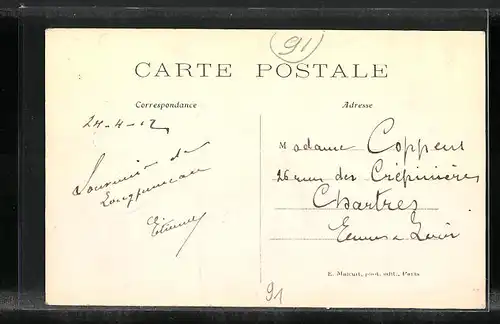 91
CARTE POSTALE
Correspondance
Adresse
24-4-12
Souvenir de
Longjumeau
Etienne
Madame Coppens
26 rue des Crépinières
Chartres
Eure & Loir
E. Malcuit, phot. édit., Paris
91